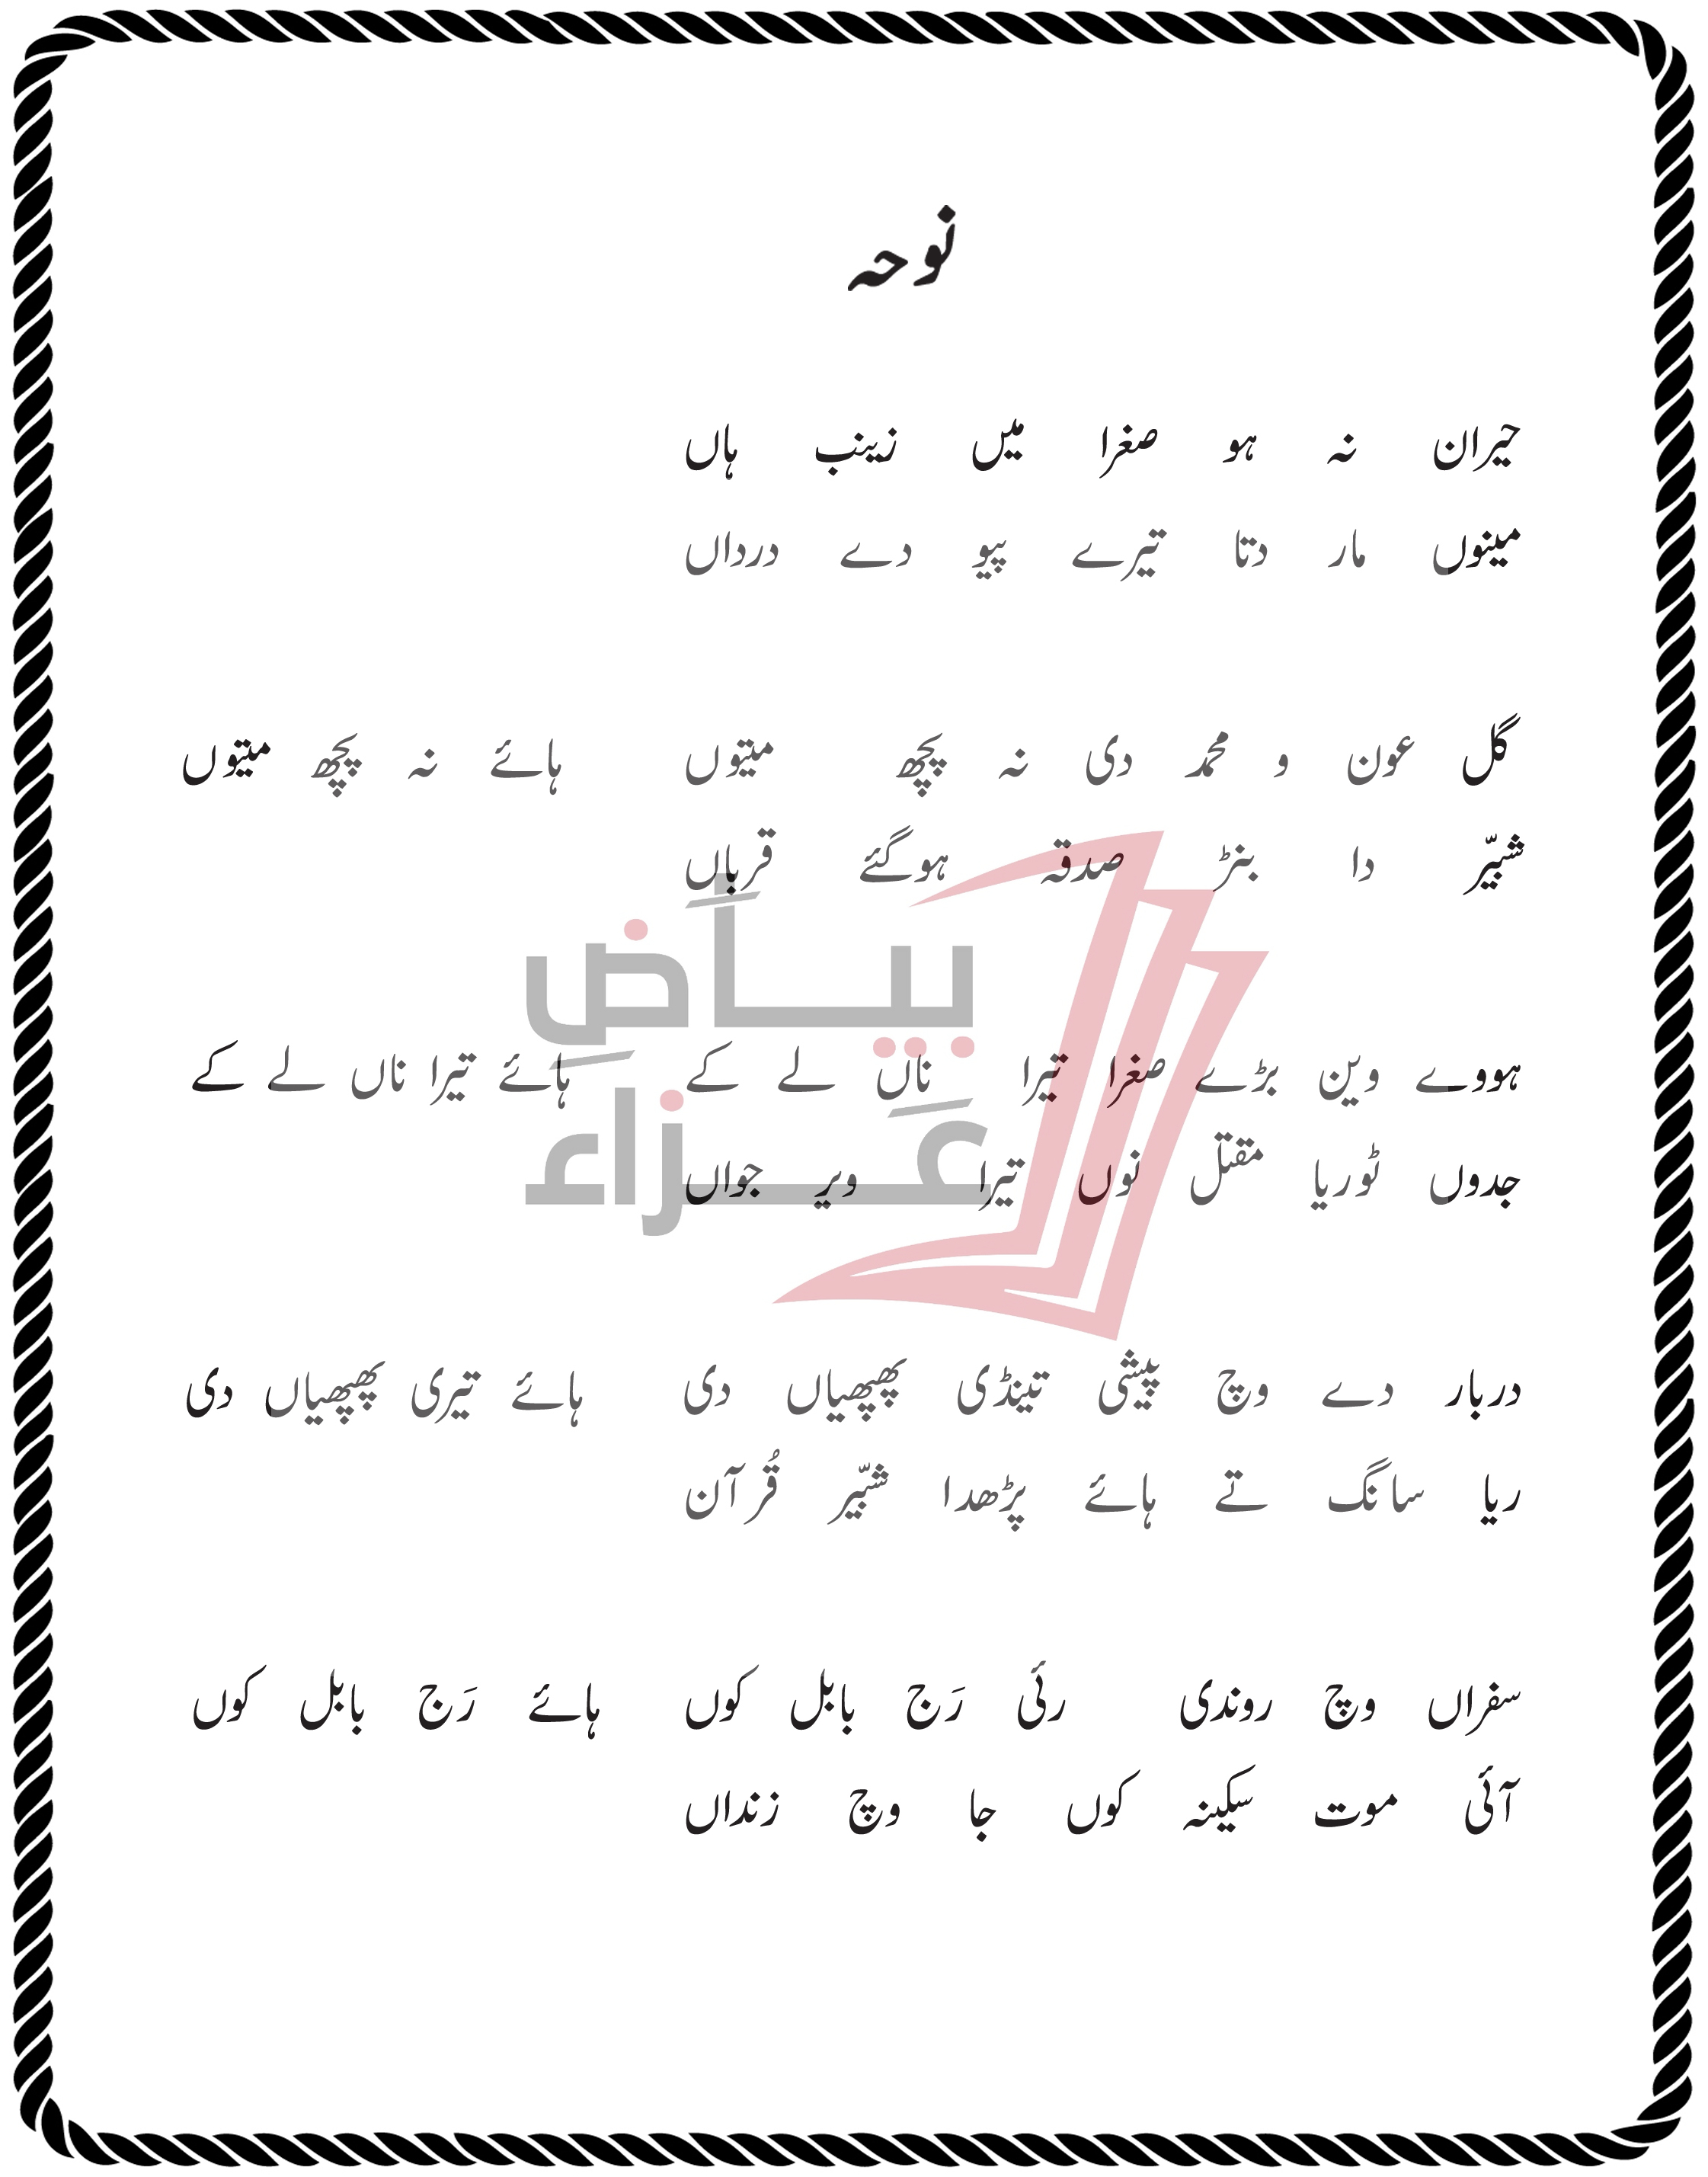 نوحہ
حیران نہ ہو صغرا میں زینب ہاں
مینوں مار دتا تیرے پیو دے درداں
گل عون و محمد دی نہ پچھ میتوں ہائے نہ پچھ میتوں
شبّیر دا بنڑ صدقہ ہوگئے قرباں
بیاض
ہووے وین بڑے صغرا تیرا ناں لے کے ہائے تیرا ناں لے کے
عزاء
جدوں ٹوریا مقتل نوں تیرا ویر جواں
دربار دے وچ پیشی تینڈی پھپھیاں دی ہائے تیری پھپھیاں دی
ریا سانگ تے ہائے پڑھدا شبّیر قُرآن
سفراں وچ روندی رئی رَج بابل کوں ہائے رَج بابل کوں
آئی موت سکینہ کوں جا وچ زنداں